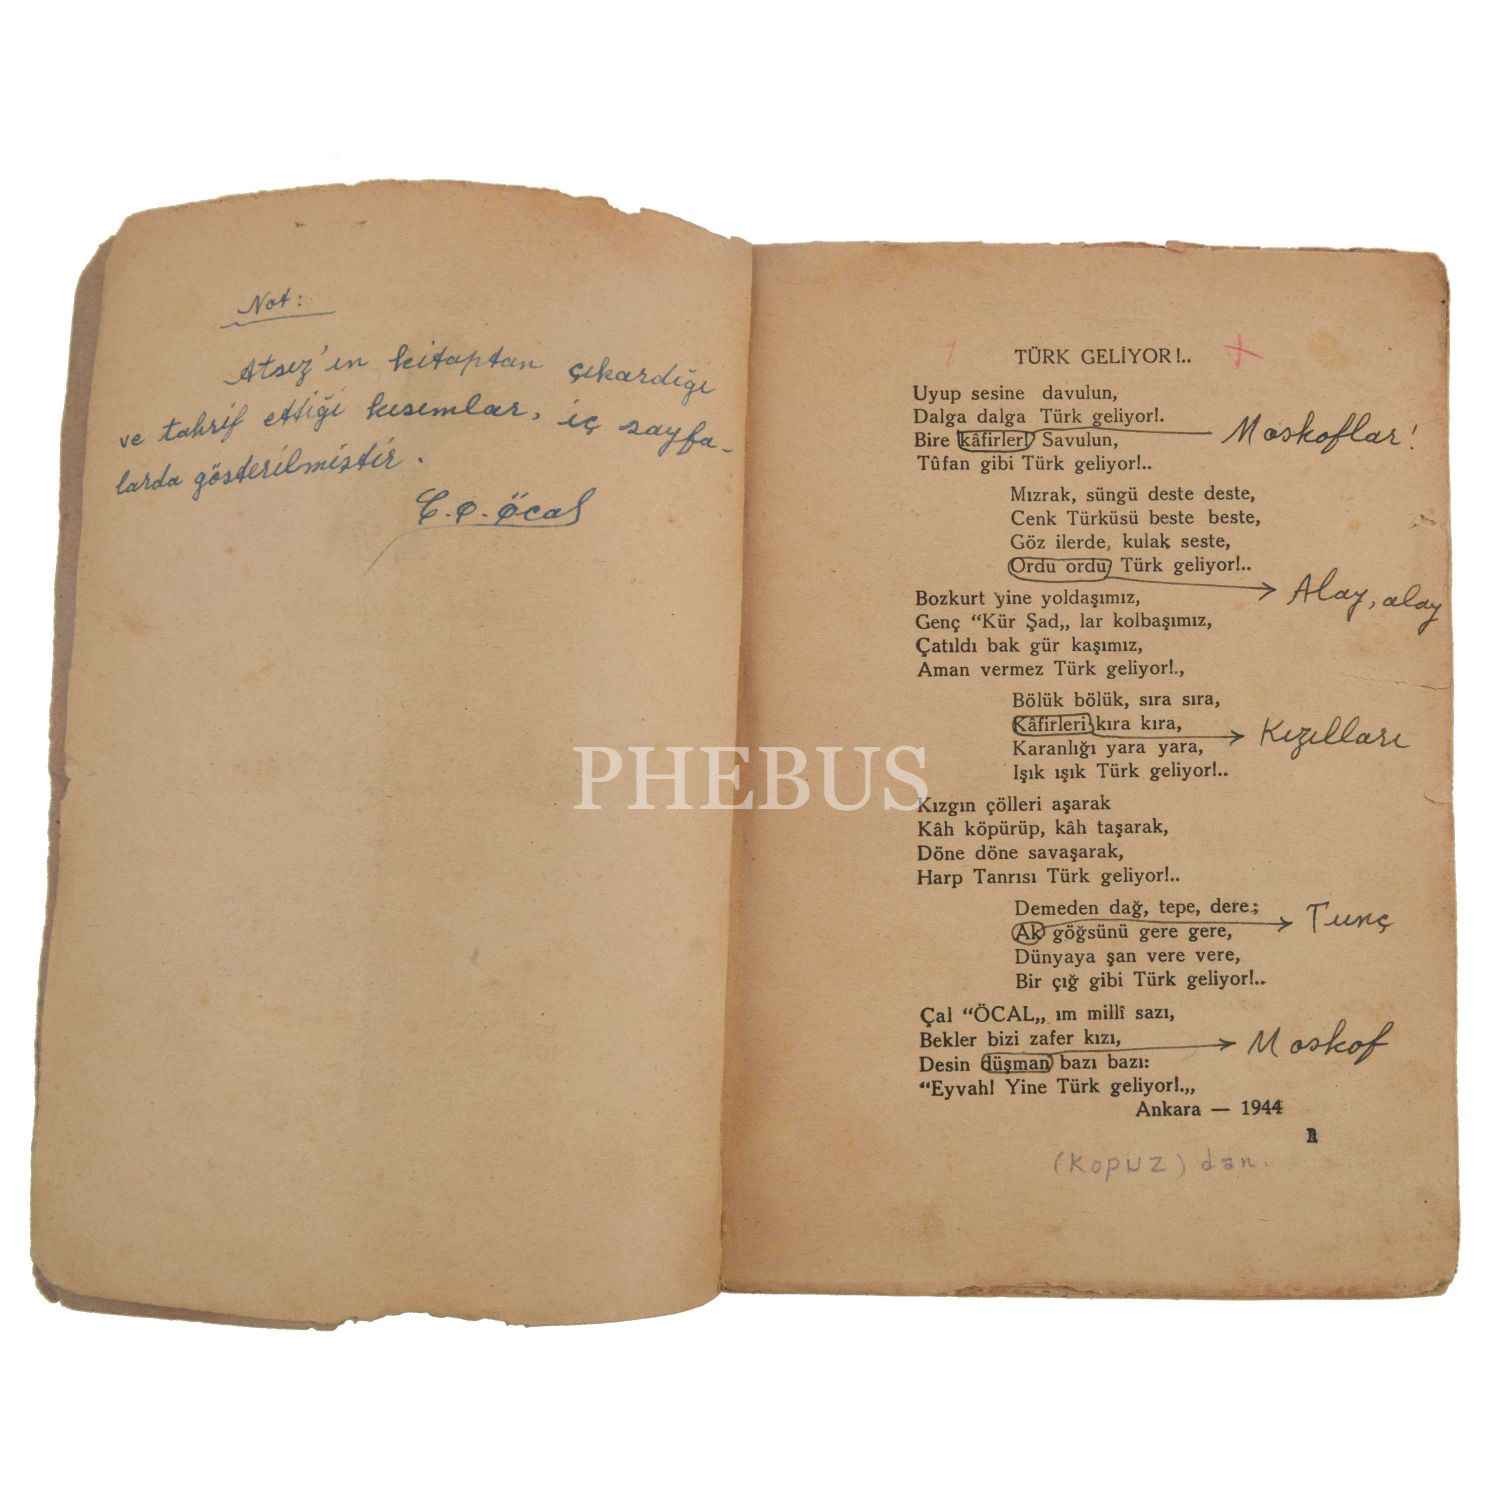 Not:
Atsız'ın kitaptan çıkardığı
ve tahrif ettiği kısımlar, iç sayfa-
larda gösterilmiştir.
C.O. Öcal
TÜRK GELİYOR!..
Uyup sesine davulun,
Dalga dalga Türk geliyor!.
Bire kâfirler! Savulun,
Moskoflar!
Tûfan gibi Türk geliyor!..
Mızrak, süngü deste deste,
Cenk Türküsü beste beste,
Göz ilerde, kulak seste,
Ordu ordu Türk geliyor!..
Alay, alay
Bozkurt yine yoldaşımız,
Genç "Kür Şad„ lar kolbaşımız,
Çatıldı bak gür kaşımız,
Aman vermez Türk geliyor!.,
Bölük bölük, sıra sıra,
Kâfirleri kıra kıra,
Kızılları
Karanlığı yara yara,
Işık ışık Türk geliyor!..
Kızgın çölleri aşarak
Kâh köpürüp, kâh taşarak,
Döne döne savaşarak,
Harp Tanrısı Türk geliyor!..
Demeden dağ, tepe, dere;
Ak göğsünü gere gere,
Tunç
Dünyaya şan vere vere,
Bir çığ gibi Türk geliyor!..
Çal "ÖCAL„ ım millî sazı,
Bekler bizi zafer kızı,
Desin düşman bazı bazı:
Moskof
"Eyvah! Yine Türk geliyor!.„
Ankara — 1944
(Kopuz) dan.
PHEBUS